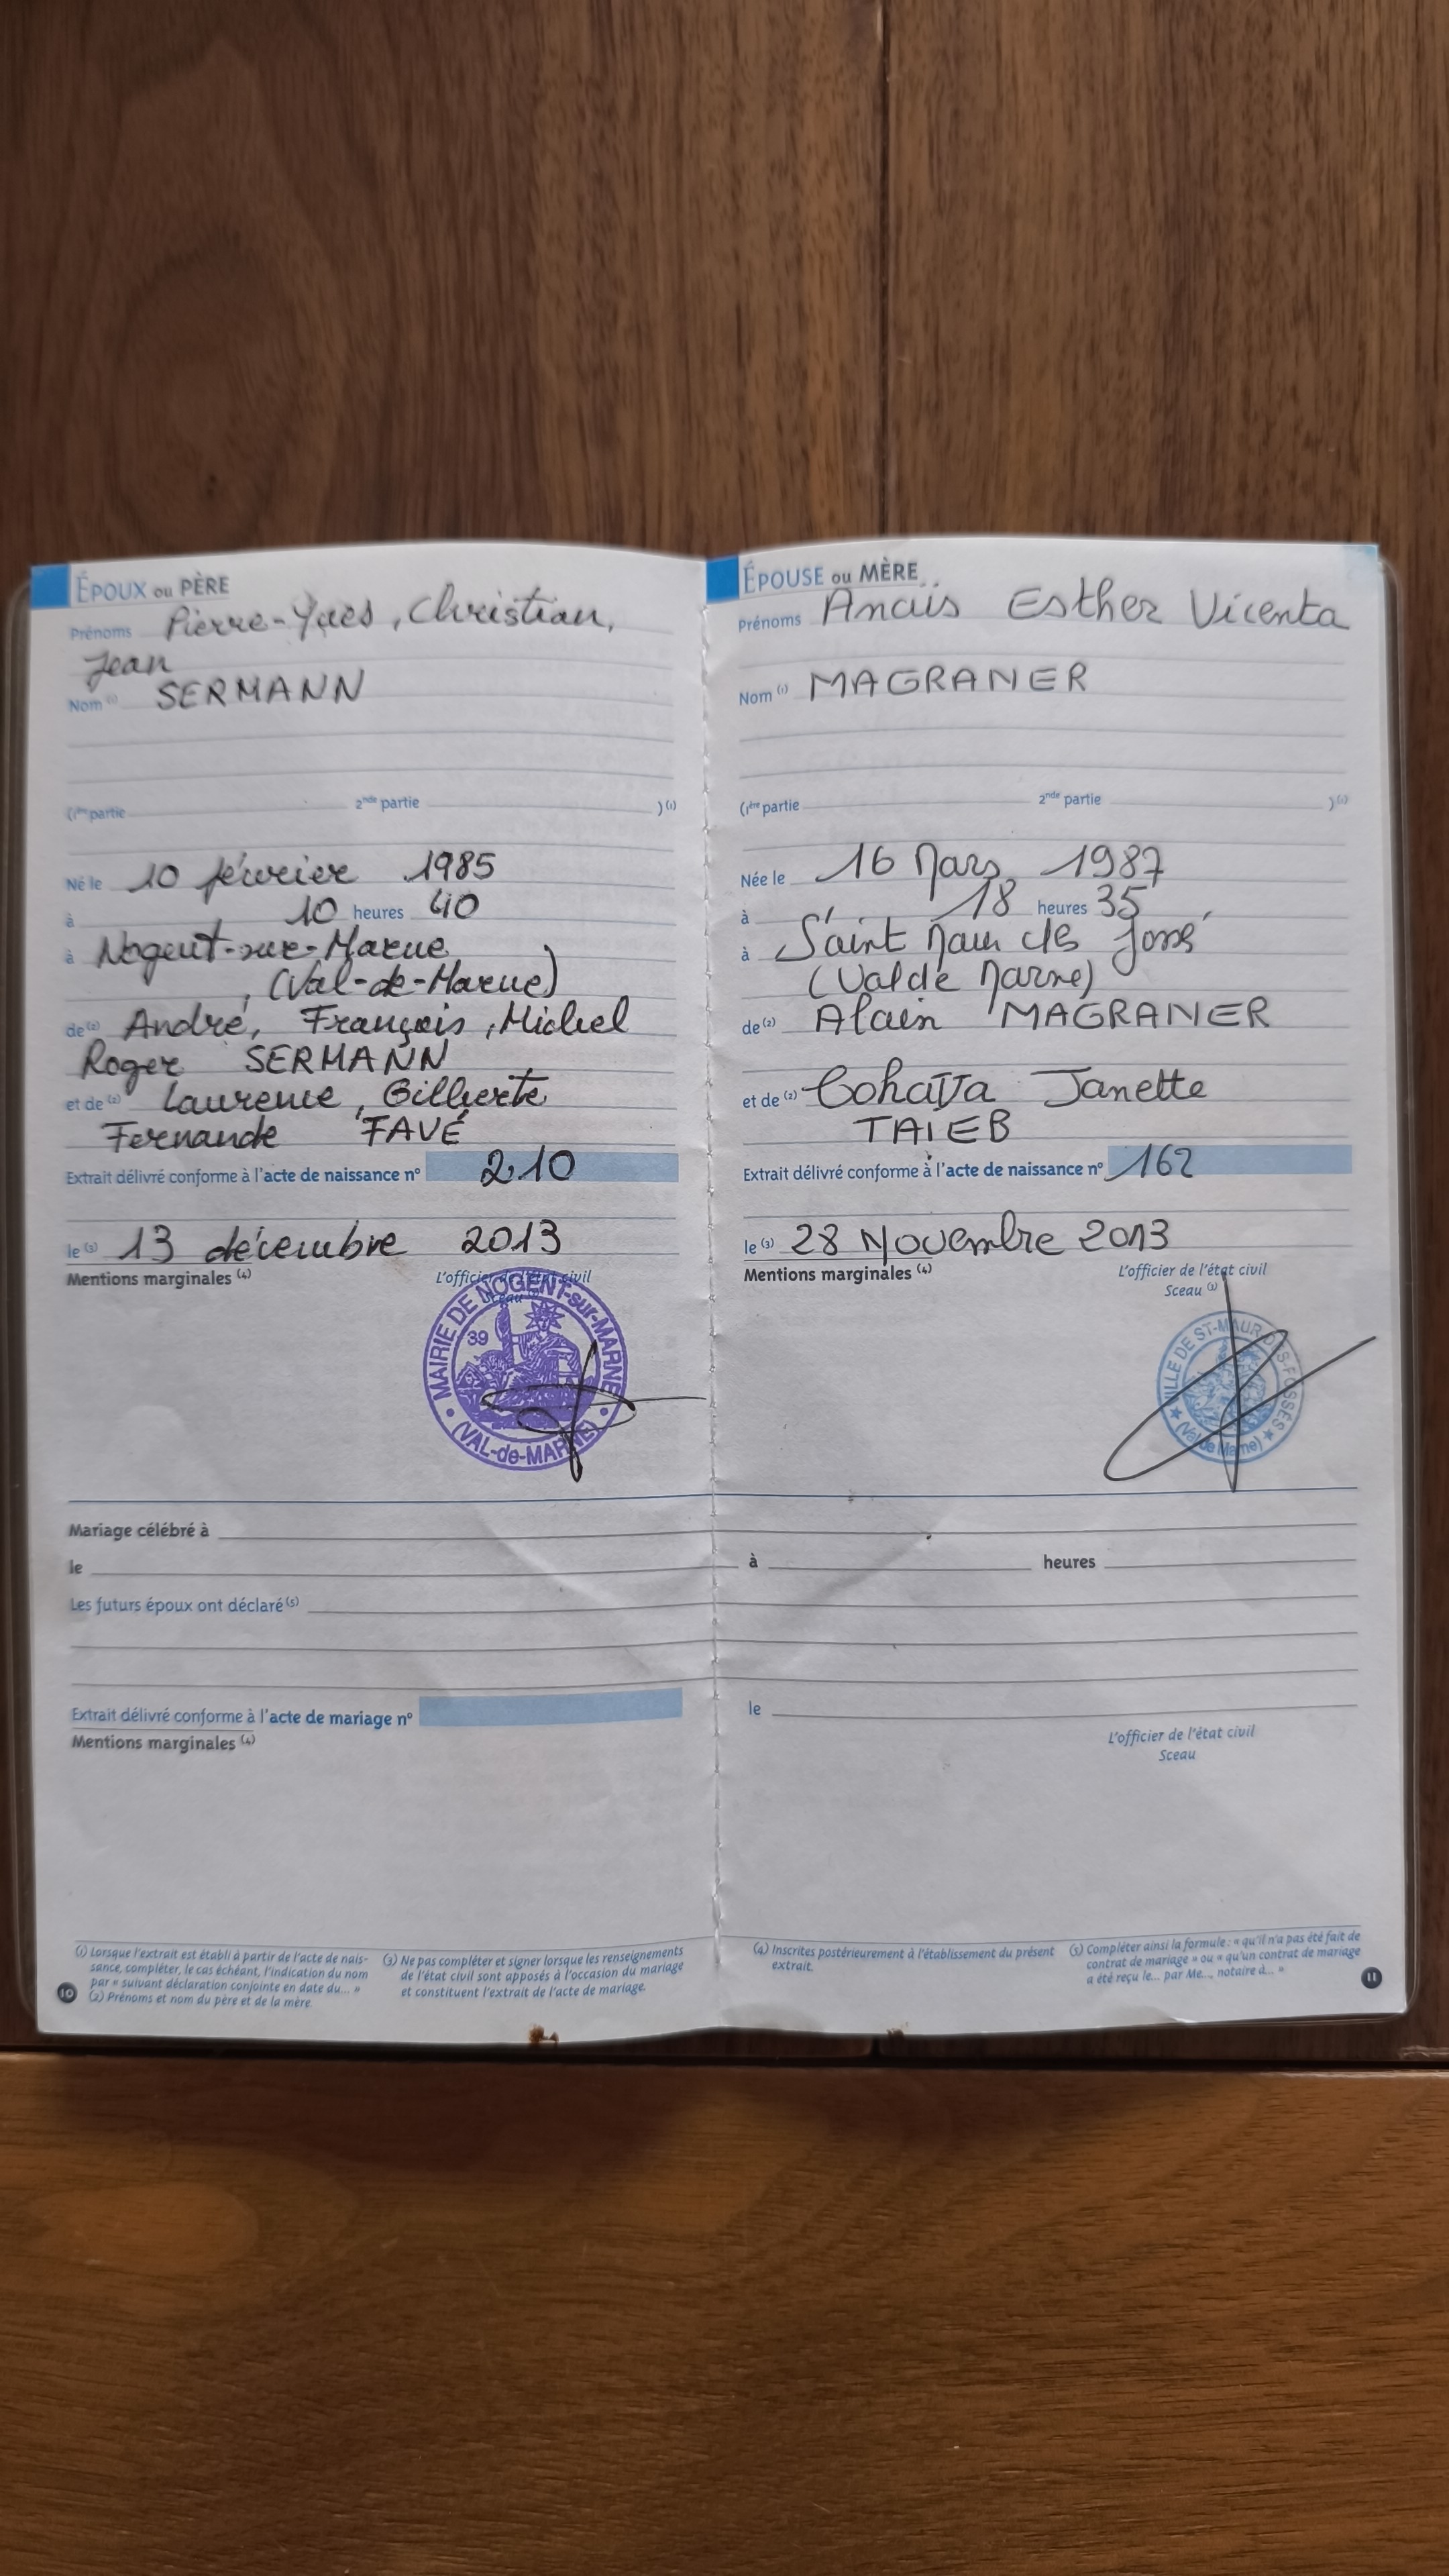 ÉPOUX ou PÈRE
Prénoms Pierre-Yves, Christian,
Jean
Nom (1) SERMANN
(1ère partie 2nde partie )(1)
Né le 10 février 1985
à 10 heures 40
à Nogent-sur-Marne
, (Val-de-Marne)
de (2) André, François, Michel
Roger SERMANN
et de (2) Laurence, Gilberte
Fernande FAVÉ
Extrait délivré conforme à l'acte de naissance n° 210
le (3) 13 décembre 2013
Mentions marginales (4) L'officier de l'état civil
Sceau
MAIRIE DE NOGENT-sur-MARNE
39
(VAL-de-MARNE)
ÉPOUSE ou MÈRE
Prénoms Anaïs Esther Vicenta
Nom (1) MAGRANER
(1ère partie 2nde partie )(1)
Née le 16 Mars 1987
à 18 heures 35
à Saint Maur des fossé
(Val de Marne)
de (2) Alain MAGRANER
et de (2) Cohava Janette
TAIEB
Extrait délivré conforme à l'acte de naissance n° 162
le (3) 28 Novembre 2013
Mentions marginales (4) L'officier de l'état civil
Sceau (3)
VILLE DE ST-MAUR DES-FOSSÉS
(Val de Marne)
Mariage célébré à
le à heures
Les futurs époux ont déclaré (5)
Extrait délivré conforme à l'acte de mariage n° le
Mentions marginales (4) L'officier de l'état civil
Sceau
(1) Lorsque l'extrait est établi à partir de l'acte de nais-
sance, compléter, le cas échéant, l'indication du nom
par « suivant déclaration conjointe en date du... »
(2) Prénoms et nom du père et de la mère.
(3) Ne pas compléter et signer lorsque les renseignements
de l'état civil sont apposés à l'occasion du mariage
et constituent l'extrait de l'acte de mariage.
10
(4) Inscrites postérieurement à l'établissement du présent
extrait.
(5) Compléter ainsi la formule : « qu'il n'a pas été fait de
contrat de mariage » ou « qu'un contrat de mariage
a été reçu le... par Me..., notaire à... ».
11